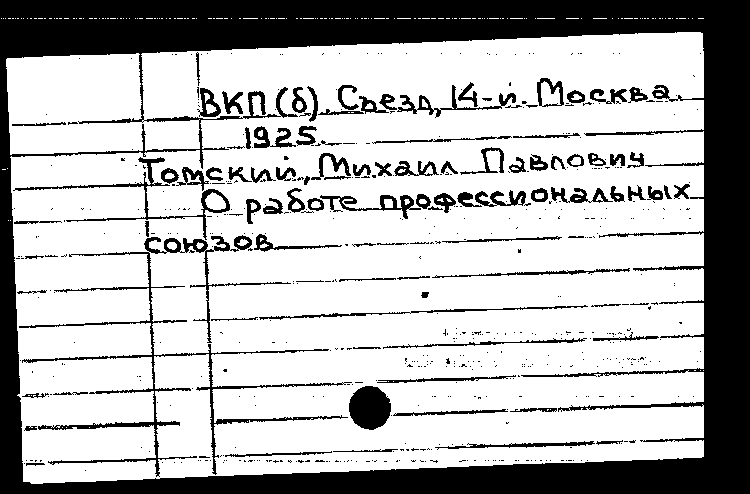 ВКП(б). Съезд, 14-й. Москва.
1925.
Томский, Михаил Павлович
О работе профессиональных
союзов